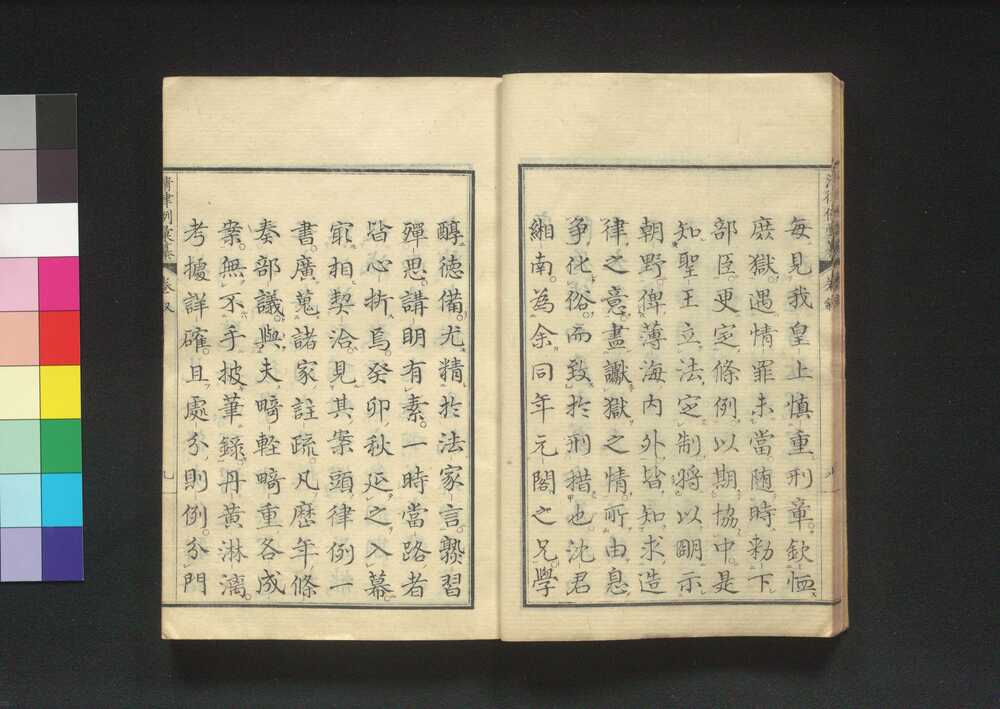 每見我皇上慎重刑章。欽恤
庶獄。遇情罪未當随時勅下
部臣。更定條例。以期協中。是
知聖王立法定制。將以眀示
朝野。俾薄海内外。皆知求造
律之意。盡讞獄之情。所由息
争化俗。而致於刑措也沈君
緗南。為余同年元閣之兄。學
醇德備。尤精於法家言。㷫習
殫思。講眀有素。一時當路者
皆心折焉。癸卯秋延之入幕
㝡相契洽。見其案頭。律例一
書。廣蒐諸家註疏。凡歴年條
奏部議。與夫畸輕畸重各成
案。無不手披筆錄。丹黄淋漓。
考據詳確。且處分則例。分門
清律例彙纂
卷叙
九